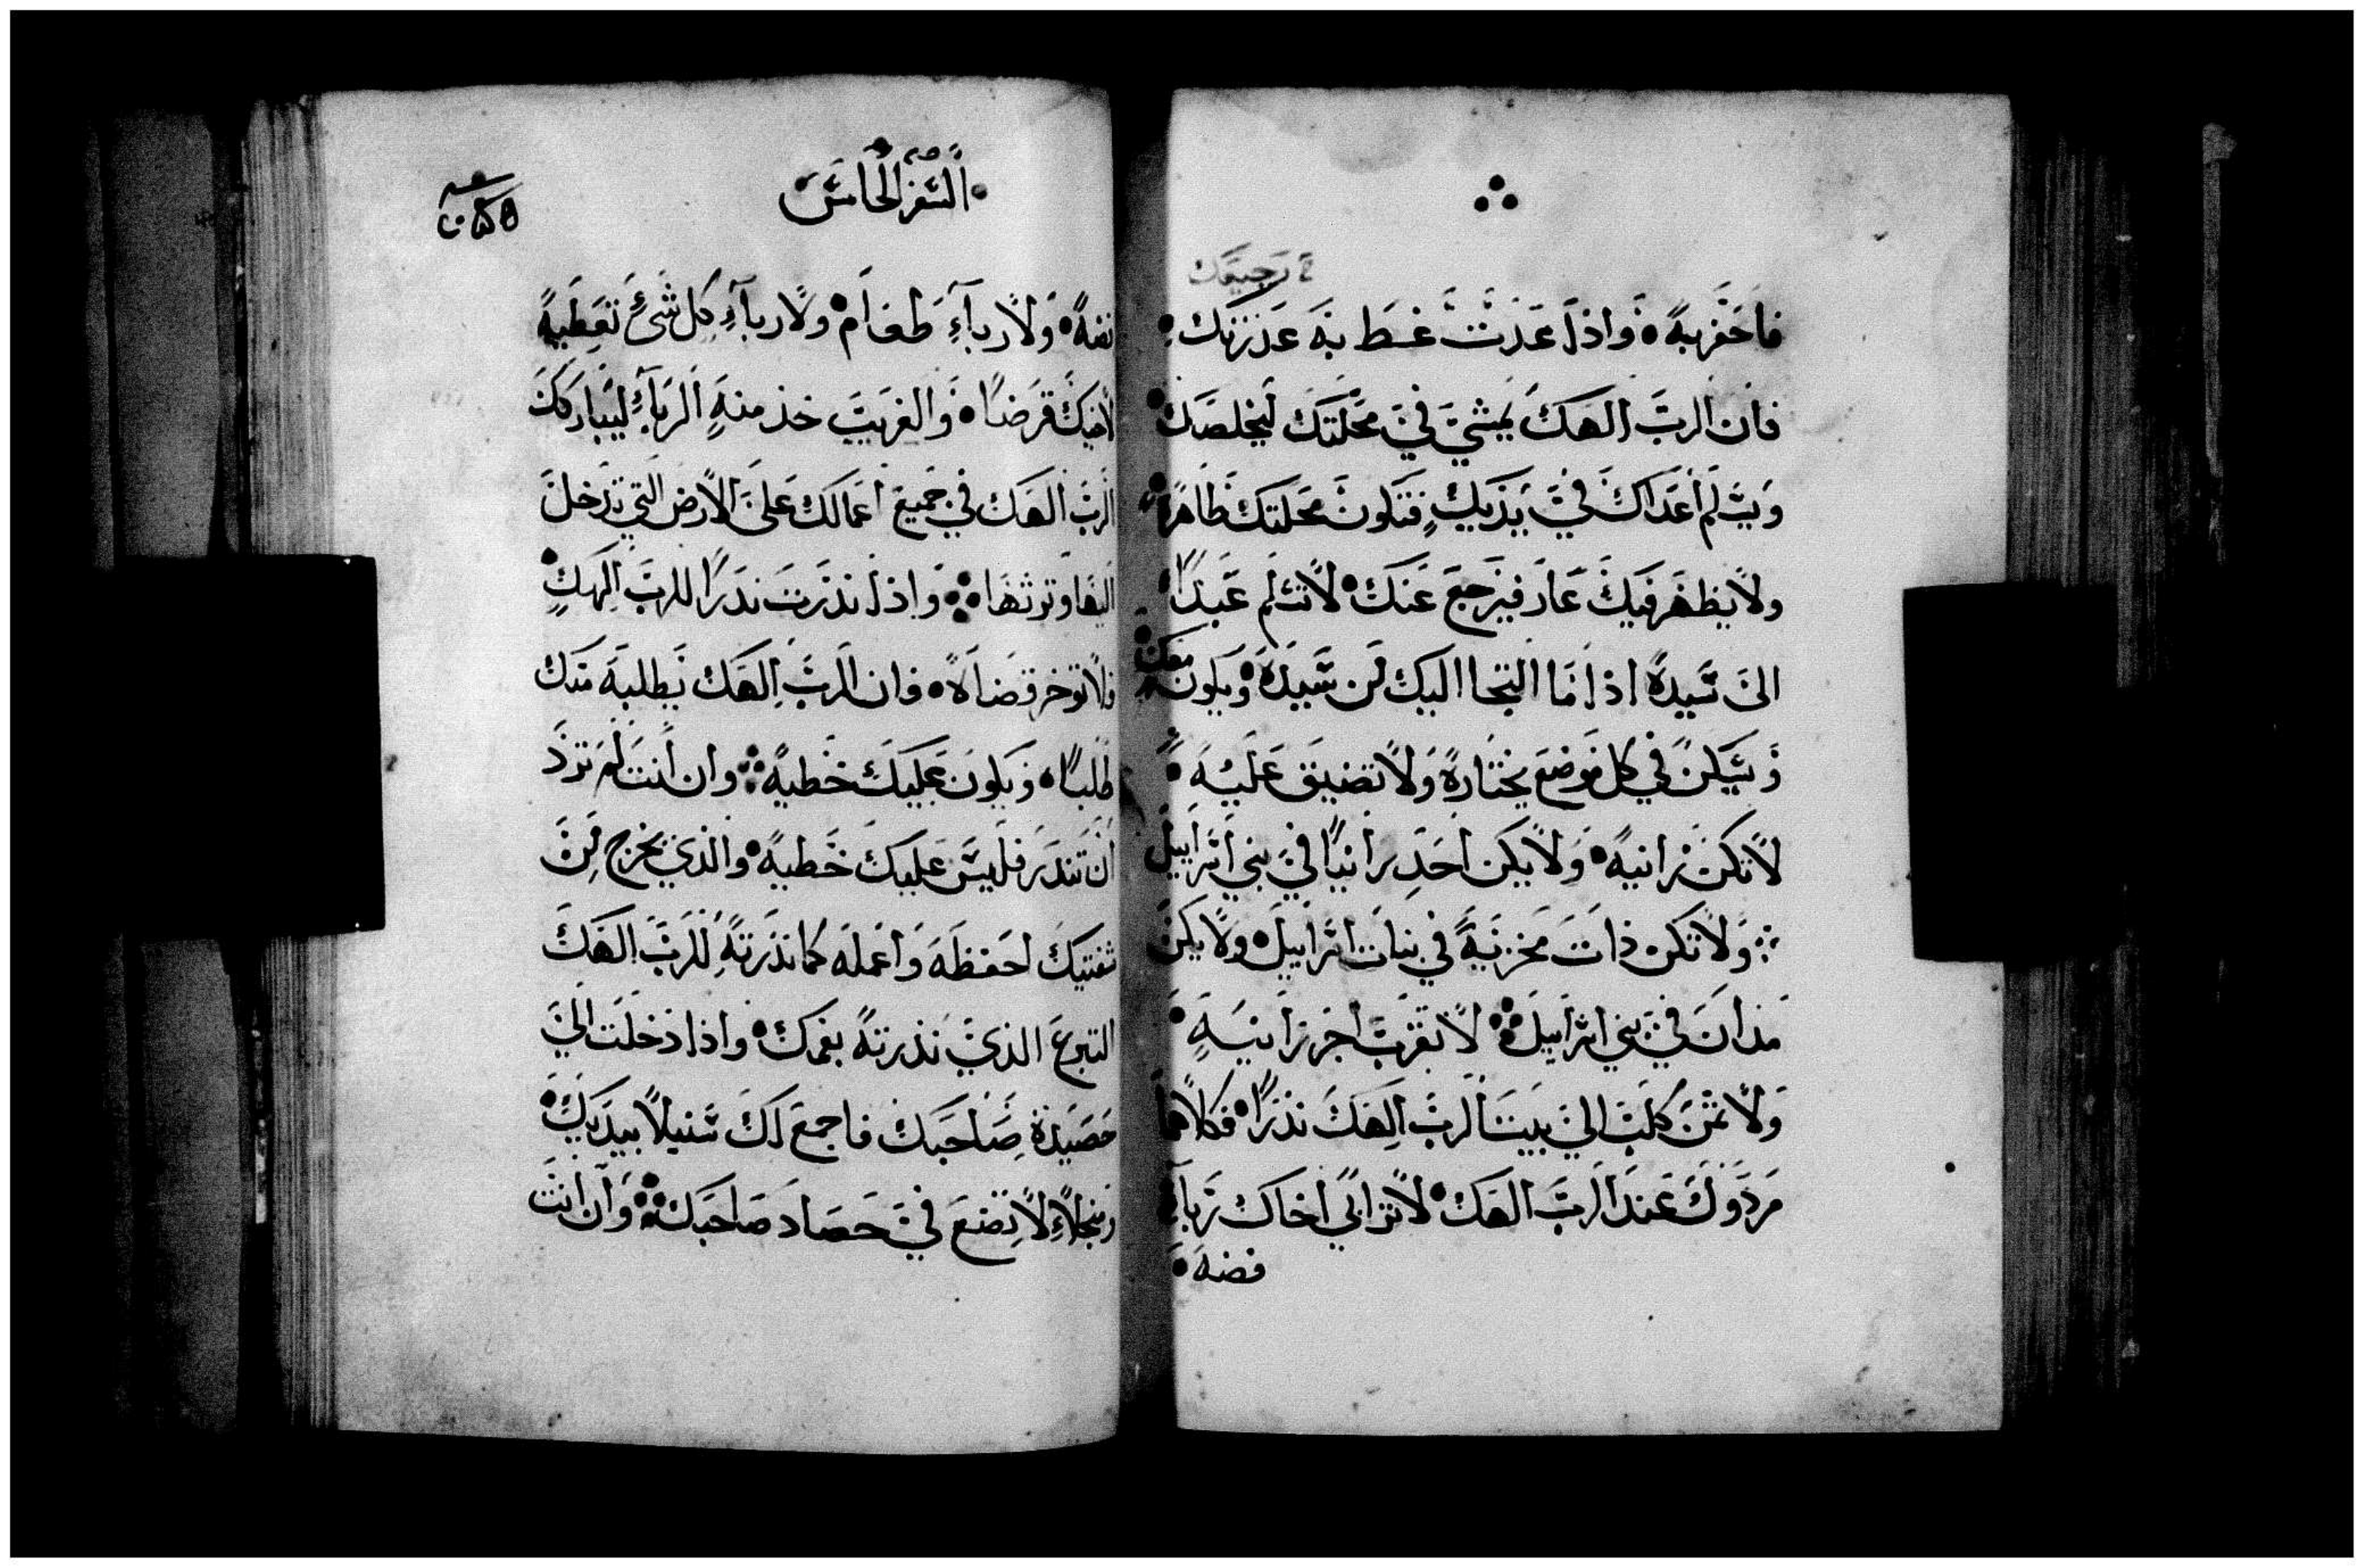 رجيعك
فاحفر به واذا عدت غط به عذرتك
فان الرب الهك يمشي في محلتك ليخلصك
ويسلم أعداك في يديك فتكون محلتك طاهرة
ولا يظهر فيك عار فيرجع عنك لا تسلم عبدًا
الى سيده اذا ما التجا اليك من سيده ويكون معك
ويسكن في كل موضع يختاره ولا تضيق عليه
لا تكن زانية ولا يكن احد زانيًا في بني اسراييل
ولا تكن ذات مخزية في بنات اسراييل ولا يكن
مدان في بني اسراييل لا تقرب اجر زانية
ولا ثمن كلب الى بيت الرب الهك نذرًا فكلاهما
مردولك عند الرب الهك لا ترابي اخاك رباء
فضة
السفر الخامس
فضة ولا رباء طعام ولا رباء كل شيء تعطيه
لأخيك قرضًا والغريب خذ منه الرباء ليباركك
الرب الهك في جميع اعمالك على الأرض التي تدخل
اليها وترثها واذا نذرت نذرًا للرب الهك
فلا توخر قضاه فان الرب الهك يطلبه منك
طلبًا ويكون عليك خطية وان انت لم ترد
أن تنذر فليس عليك خطية والذي يخرج من
شفتيك احفظه واعمله كما نذرته للرب الهك
التبرع الذي نذرته بفمك واذا دخلت الى
حصيدة صاحبك فاجمع لك سنبلًا بيديك
ومنجلًا لا تضع في حصاد صاحبك وان انت